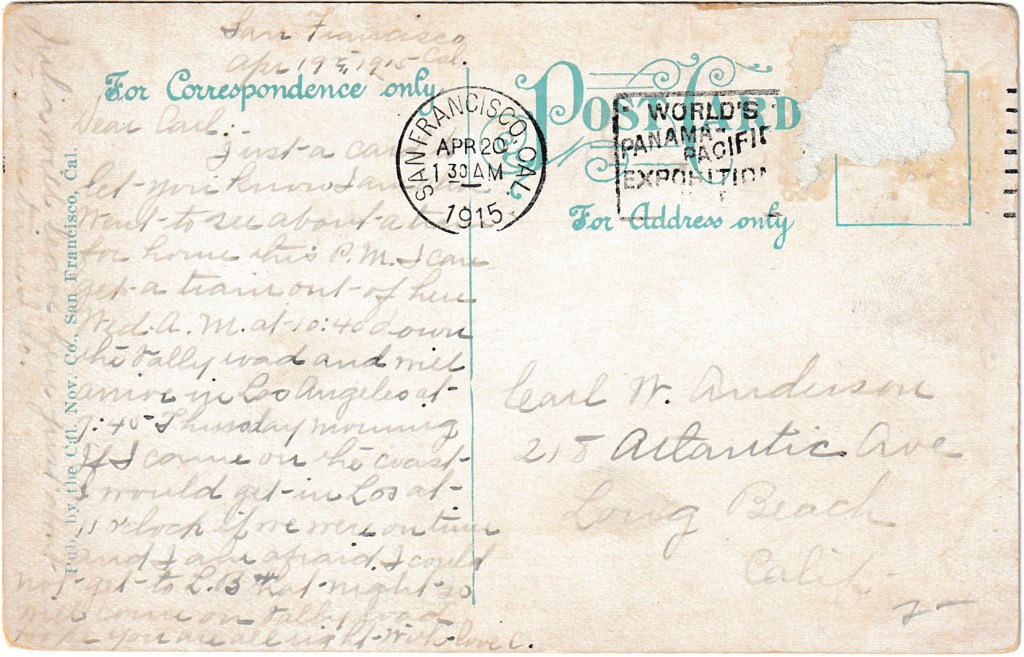 San Francisco
Apr 19th, 1915 Cal.
For Correspondence only
Dear Carl:-
Just a card
let you know I am
Want to see about a
for home this P.M. I can
get a train out of here
Wed. A.M. at 10:40 down
the Vally road and will
arrive in Los Angeles at
7:45 Thursday morning
If I come on the coast
I would get in Los at
11 o'clock if we were on time
and I am afraid I could
not get to L.B that night so
will come on Vally road
hope you are all right With love C.
Pub. by the Cal. Nov. Co., San Francisco, Cal.
POSTCARD
SAN FRANCISCO, CAL.
APR 20
1 30 AM
1915
WORLD'S
PANAMA-
PACIFIC
EXPOSITION
For Address only
Carl W. Anderson
218 Atlantic Ave
Long Beach
Calif.